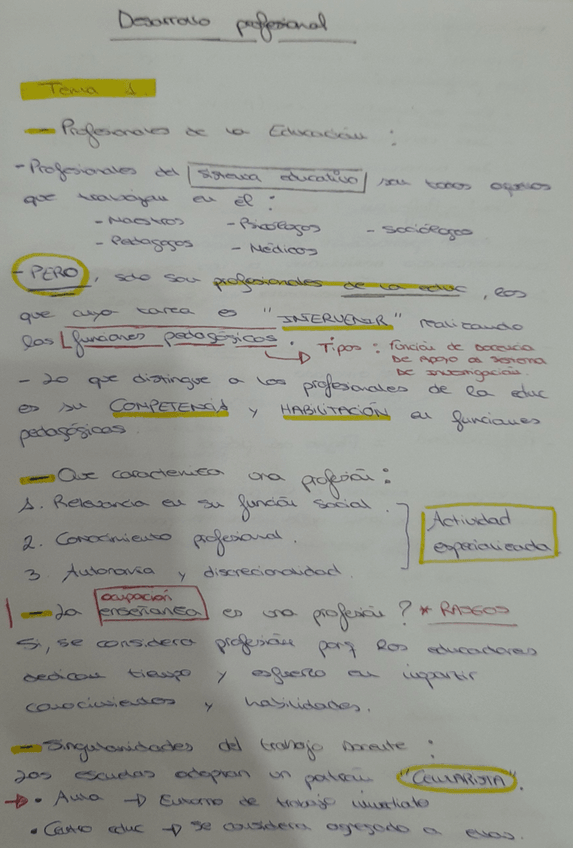 Desarrollo profesional
Tema 1.
- Profesionales de la Educación :
- Profesionales del sistema educativo son todos aquellos
que trabajan en él :
- Maestros - Psicólogos - Sociólogos
- Pedagogos - Médicos
- PERO, solo son profesionales de la educ, los
que cuya tarea es "INTERVENIR" realizando
las funciones pedagógicas. Tipos : función de docencia
De apoyo al sistema
De investigación.
- Lo que distingue a los profesionales de la educ
es su COMPETENCIA y HABILITACIÓN en funciones
pedagógicas.
- Que caracteriza una profesión :
1. Relevancia en su función social.
2. Conocimiento profesional.
3. Autonomía y discrecionalidad.
Actividad
especializada
ocupación
- La enseñanza es una profesión ? * RASGOS
Si, se considera profesión porq los educadores
dedican tiempo y esfuerzo en impartir
conocimientos y habilidades.
- Singularidades del trabajo docente :
Las escuelas adoptan un patrón "CELULARISTA".
→ • Aula → Entorno de trabajo inmediato
• Centro educ → se considera agregado a